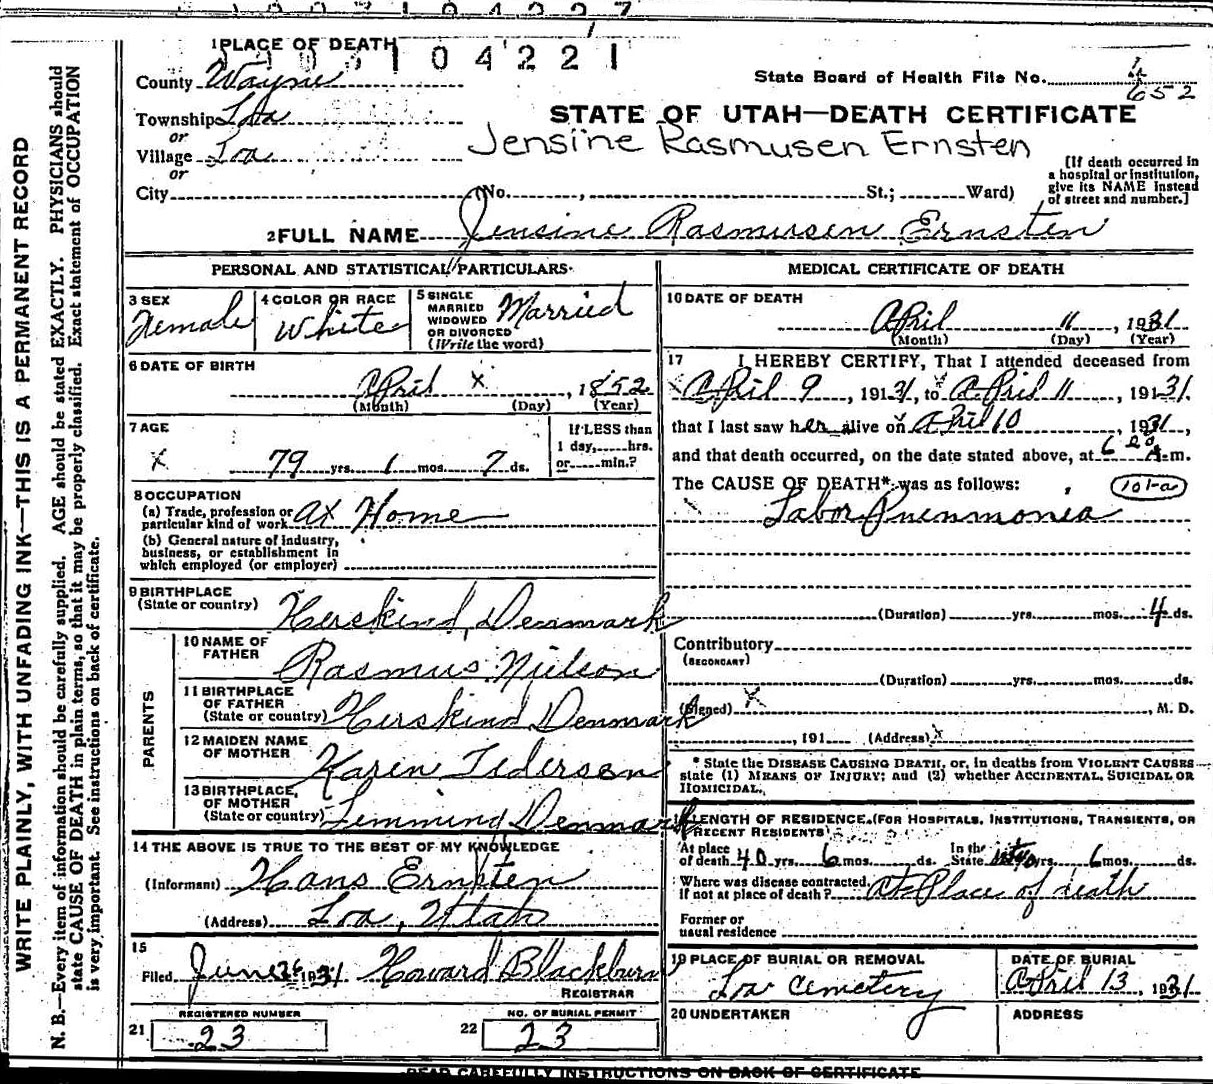 1 PLACE OF DEATH
104221
County Wayne
State Board of Health File No. 652
Township Loa
STATE OF UTAH—DEATH CERTIFICATE
or
Village Loa
Jensine Rasmusen Ernsten
or
City (No. , St.; Ward)
[If death occurred in
a hospital or institution,
give its NAME instead
of street and number.]
2 FULL NAME Jensine Rasmusen Ernsten
PERSONAL AND STATISTICAL PARTICULARS
3 SEX
Female
4 COLOR OR RACE
White
5 SINGLE
MARRIED
WIDOWED
OR DIVORCED
(Write the word)
Married
6 DATE OF BIRTH
April x , 1852
(Month) (Day) (Year)
7 AGE
x 79 yrs. 1 mos. 7 ds.
If LESS than
1 day, hrs.
or min.?
8 OCCUPATION
(a) Trade, profession or
particular kind of work at Home
(b) General nature of industry,
business, or establishment in
which employed (or employer)
9 BIRTHPLACE
(State or country) Herskind, Denmark
PARENTS
10 NAME OF
FATHER Rasmus Nielson
11 BIRTHPLACE
OF FATHER
(State or country) Herskind Denmark
12 MAIDEN NAME
OF MOTHER Karen Pederson
13 BIRTHPLACE
OF MOTHER
(State or country) Lemming Denmark
14 THE ABOVE IS TRUE TO THE BEST OF MY KNOWLEDGE
(Informant) Hans Ernsten
(Address) Loa, Utah
15
Filed June 26 1931 Howard Blackburn
REGISTRAR
REGISTERED NUMBER
21 23
NO. OF BURIAL PERMIT
22 23
MEDICAL CERTIFICATE OF DEATH
16 DATE OF DEATH
April 11 , 1931
(Month) (Day) (Year)
17 I HEREBY CERTIFY, That I attended deceased from
x April 9 , 1931, to x April 11 , 1931.
that I last saw her alive on April 10 , 1931,
and that death occurred, on the date stated above, at 6 A.m.
The CAUSE OF DEATH* was as follows: 101-a
Labor Pnenmonea
(Duration) yrs. mos. 4 ds.
Contributory
(SECONDARY)
(Duration) yrs. mos. ds.
(Signed) x , M. D.
, 191 (Address) x
* State the DISEASE CAUSING DEATH, or, in deaths from VIOLENT CAUSES
state (1) MEANS OF INJURY; and (2) whether ACCIDENTAL, SUICIDAL OR
HOMICIDAL.
LENGTH OF RESIDENCE (FOR HOSPITALS, INSTITUTIONS, TRANSIENTS, OR
RECENT RESIDENTS)
At place
of death 40 yrs. 6 mos. ds.
In the
State yrs. 6 mos. ds.
Where was disease contracted,
if not at place of death? at Place of death
Former or
usual residence
19 PLACE OF BURIAL OR REMOVAL
Loa cemetery
DATE OF BURIAL
April 13 , 1931
20 UNDERTAKER
ADDRESS
WRITE PLAINLY, WITH UNFADING INK—THIS IS A PERMANENT RECORD
N. B.—Every item of information should be carefully supplied. AGE should be stated EXACTLY. PHYSICIANS should
state CAUSE OF DEATH in plain terms, so that it may be properly classified. Exact statement of OCCUPATION
is very important. See instructions on back of certificate.
READ CAREFULLY INSTRUCTIONS ON BACK OF CERTIFICATE